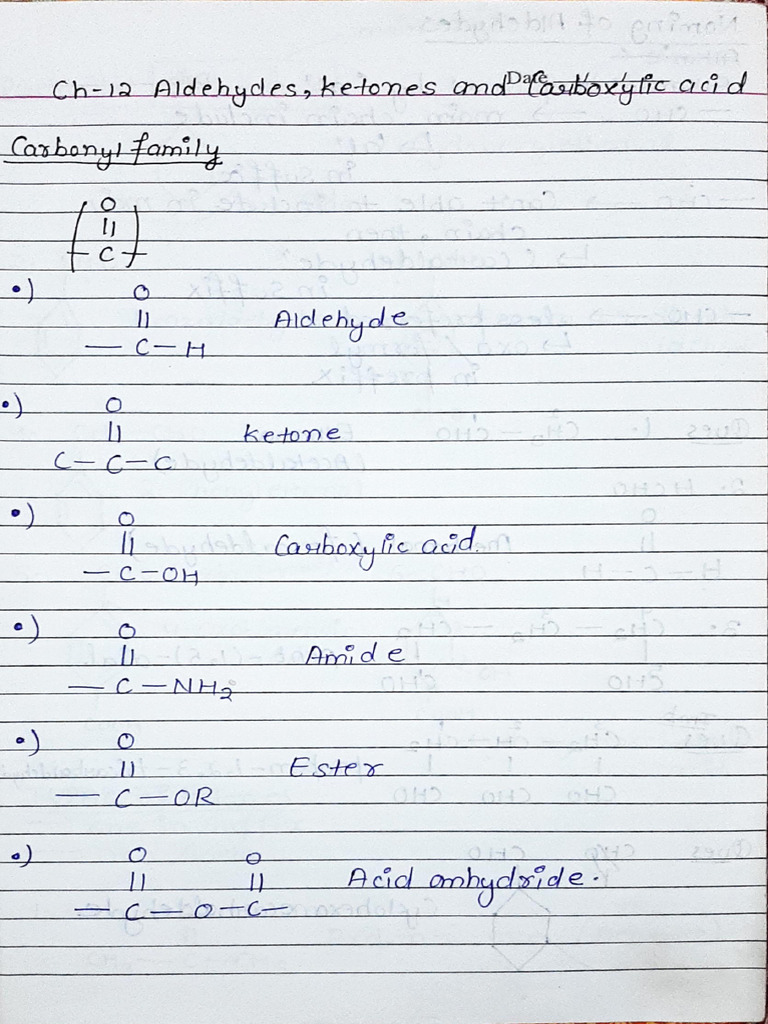 Date
Ch-12 Aldehydes, ketones and Carboxylic acid
Carbonyl family
O
||
C
•) O
|| Aldehyde
— C — H
•) O
|| ketone
C — C — C
•) O
|| Carboxylic acid.
— C — OH
•) O
|| Amide
— C — NH2
•) O
|| Ester
— C — OR
•) O O
|| || Acid anhydride.
— C — O — C —